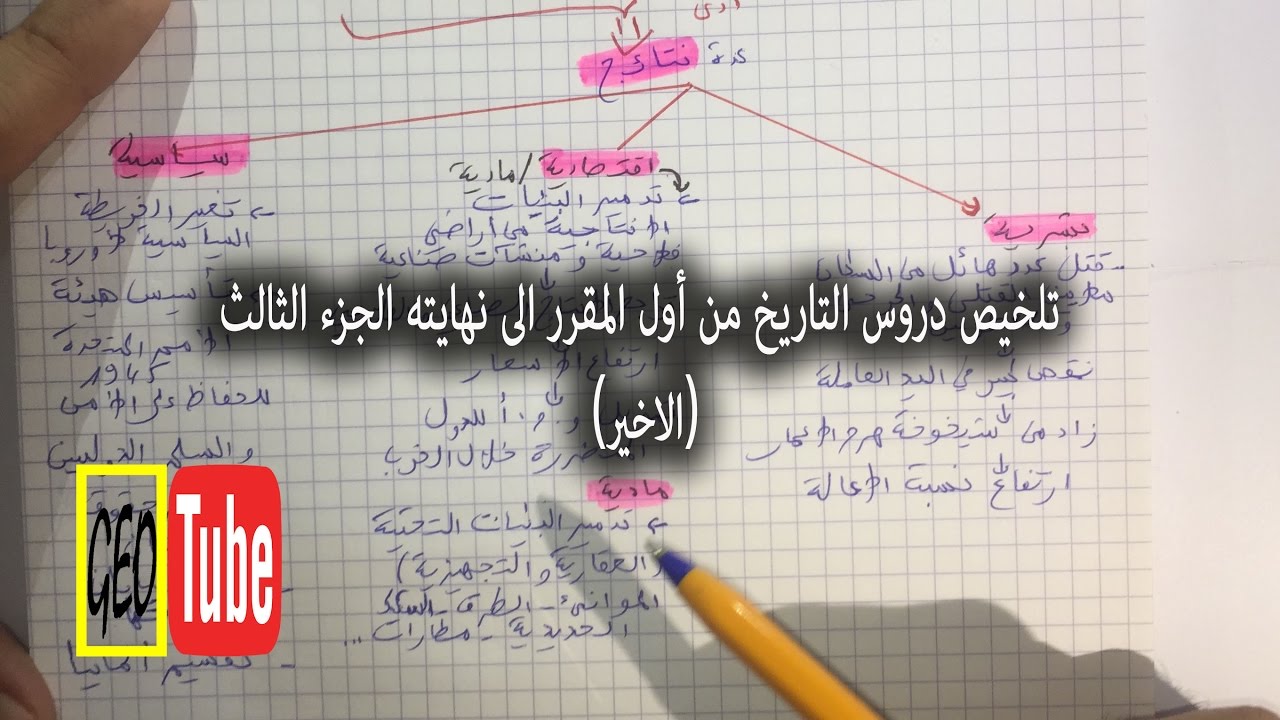 عدة نتائج
بشرية
- قتل عدد هائل من
نقص كبير في اليد العاملة
زاد من شيخوخة هرم الأعمار
ارتفاع نسبة الإعالة
اقتصادية/مادية
تدمير البنيات
الإنتاجية من أراضي
فلاحية و منشآت صناعية
ارتفاع الأسعار
و.م.أ للدول
المتضررة خلال الحرب
مادية
تدمير البنيات التحتية
(العقارية والتجهيزية)
الموانئ - الطرق - السكك
الحديدية - مطارات ...
سياسية
تغير الخريطة
السياسية لأوروبا
تأسيس هيئة
الأمم المتحدة
1945
للحفاظ على الأمن
والسلم الدوليين
- تقسيم ألمانيا
تلخيص دروس التاريخ من أول المقرر الى نهايته الجزء الثالث
(الاخير)
GEO Tube